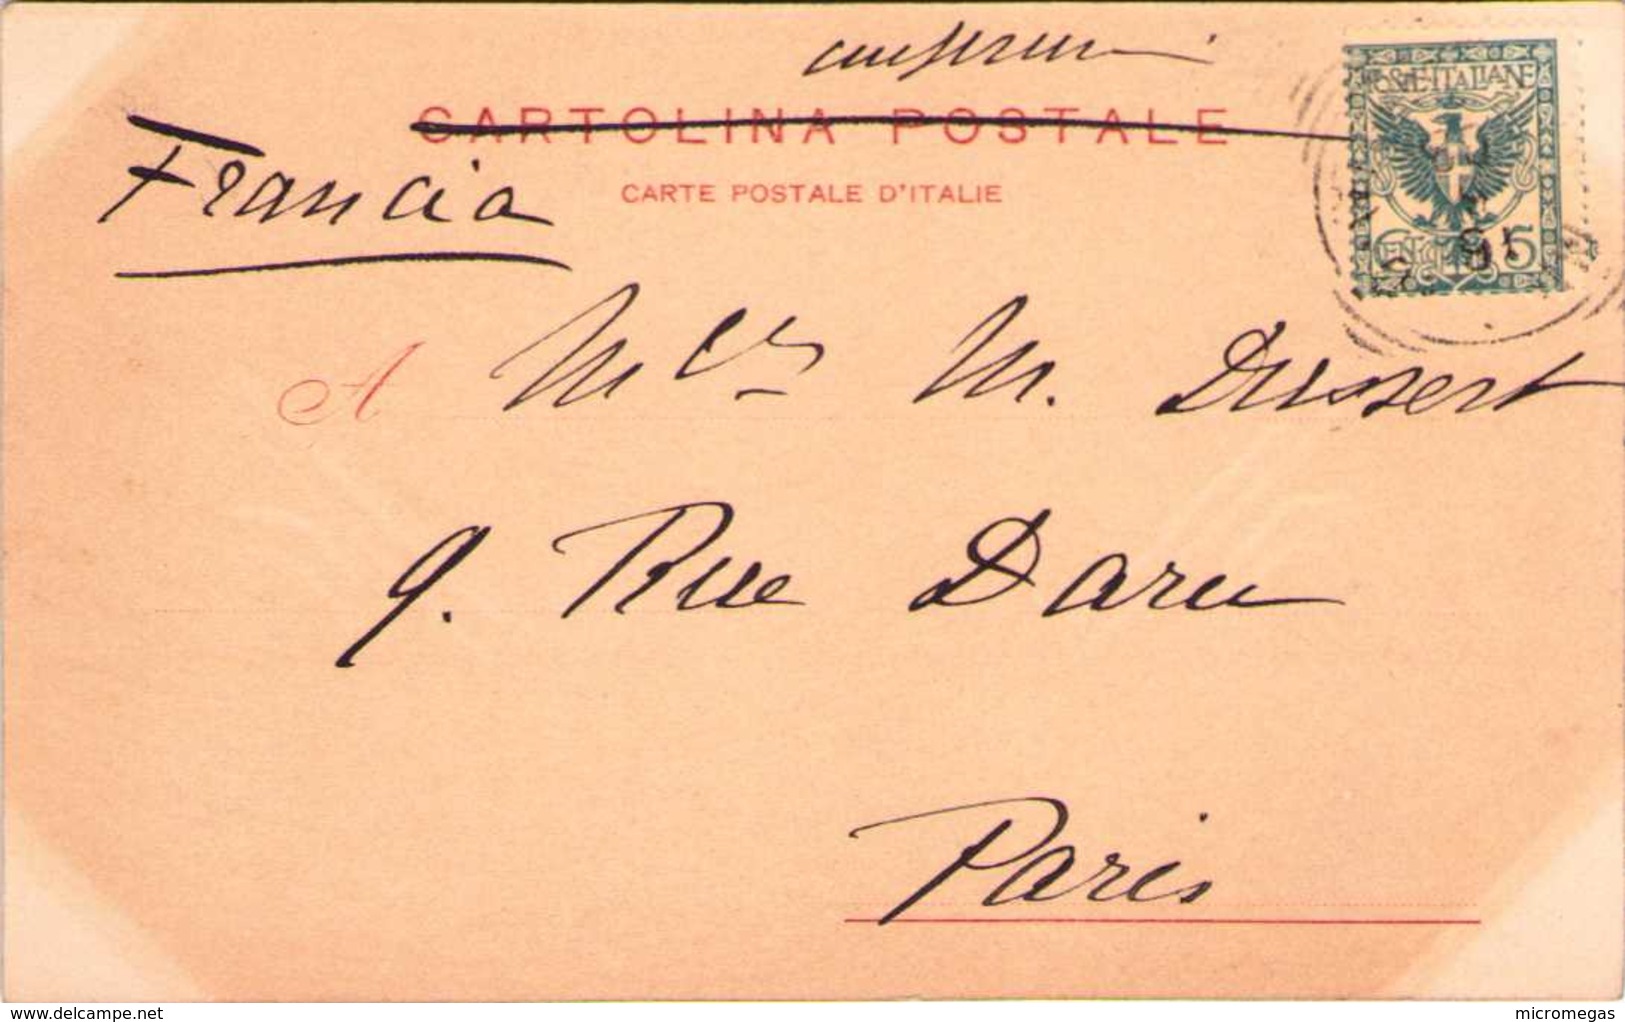 CARTOLINA POSTALE
CARTE POSTALE D'ITALIE
POSTE·ITALIANE
CENT 5
Francia
A M. Dussert
9. Rue Daru
Paris
www.delcampe.net
micromegas